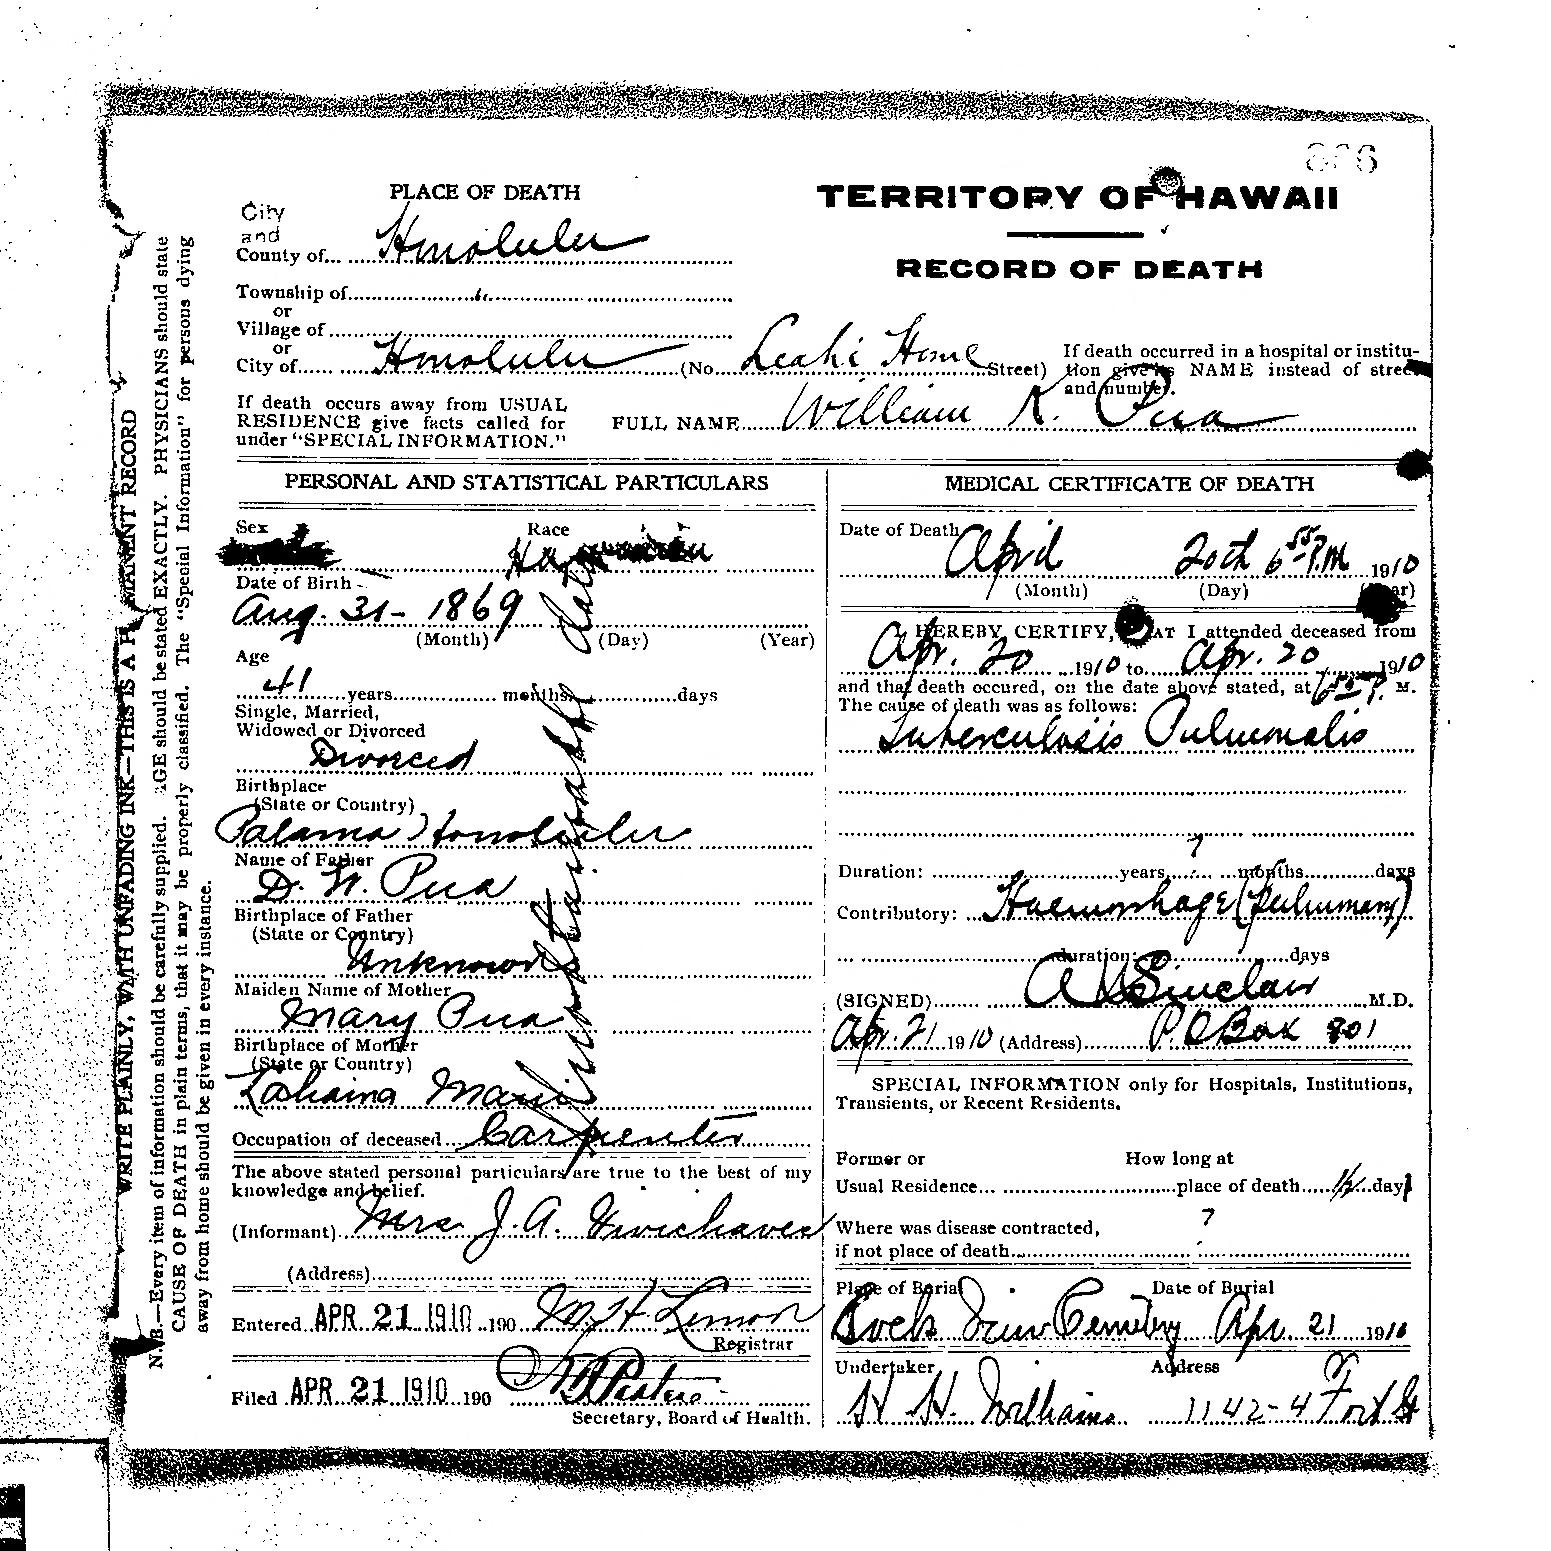 PLACE OF DEATH
TERRITORY OF HAWAII
RECORD OF DEATH
City
and
County of... Honolulu
Township of "
or
Village of
or
City of Honolulu (No. Leahi Home Street)
If death occurred in a hospital or institution give its NAME instead of street and number.
If death occurs away from USUAL
RESIDENCE give facts called for
under "SPECIAL INFORMATION."
FULL NAME William K. Pua
PERSONAL AND STATISTICAL PARTICULARS
Sex
Race
Date of Birth
Aug. 31 - 1869
(Month) (Day) (Year)
Age
41 years months days
Single, Married,
Widowed or Divorced
Divorced
Birthplace
(State or Country)
Palama Honolulu
Name of Father
D. W. Pua
Birthplace of Father
(State or Country)
Unknown
Maiden Name of Mother
Mary Pua
Birthplace of Mother
(State or Country)
Lahaina Maui
Occupation of deceased Carpenter
The above stated personal particulars are true to the best of my
knowledge and belief.
(Informant) Mrs. J. A.
(Address)
Entered APR 21 1910 190
Registrar
Filed APR 21 1910 190
Secretary, Board of Health.
MEDICAL CERTIFICATE OF DEATH
Date of Death April 20th 6 55 P.M. 1910
(Month) (Day) (Year)
HEREBY CERTIFY, THAT I attended deceased from
Apr. 20 1910 to Apr. 20 1910
and that death occured, on the date above stated, at 6 55 P. M.
The cause of death was as follows:
Tuberculosis Pulmonalis
Duration: years ? months days
Contributory: Haemorrhage (pulmonary)
duration days
(SIGNED) A Sinclair M.D.
Apr. 21 1910 (Address) P.O Box 801
SPECIAL INFORMATION only for Hospitals, Institutions,
Transients, or Recent Residents.
Former or
Usual Residence
How long at
place of death 1/2 day
Where was disease contracted,
if not place of death ?
Place of Burial
Date of Burial
Cemetery Apr. 21 1910
Undertaker
Address
H. H. Williams 1142-4 Fort St
WRITE PLAINLY, WITH UNFADING INK—THIS IS A PERMANENT RECORD
N. B.—Every item of information should be carefully supplied. AGE should be stated EXACTLY. PHYSICIANS should state
CAUSE OF DEATH in plain terms, that it may be properly classified. The "Special Information" for persons dying
away from home should be given in every instance.